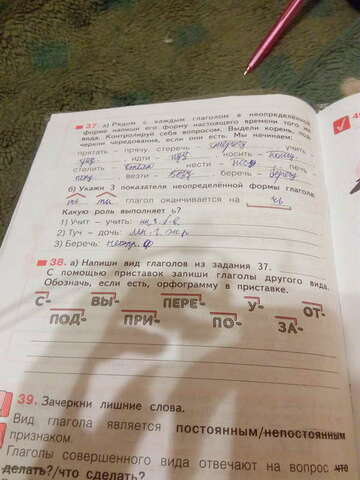 37. а) Рядом с каждым глаголом в неопределённой
форме напиши его форму настоящего времени того же
вида. Контролируй себя вопросом. Выдели корень, под-
черкни чередования, если они есть. Мы начинаем:
прятать – прячу, стеречь – стерегу, учить –
учу, идти – иду, носить –
стелить –, нести – несу, печь –
пеку, везти – везу, беречь – берегу
б) Укажи 3 показателя неопределённой формы глагола
ть, ти, глагол оканчивается на чь
Какую роль выполняет ь?
1) Учит – учить:
2) Туч – дочь:
3) Беречь:
38. а) Напиши вид глаголов из задания 37.
С помощью приставок запиши глаголы другого вида.
Обозначь, если есть, орфограмму в приставке.
С- ВЫ- ПЕРЕ- У- ОТ-
ПОД- ПРИ- ПО- ЗА-
39. Зачеркни лишние слова.
Вид глагола является постоянным/непостоянным
признаком.
Глаголы совершенного вида отвечают на вопрос что
делать?/что сделать?